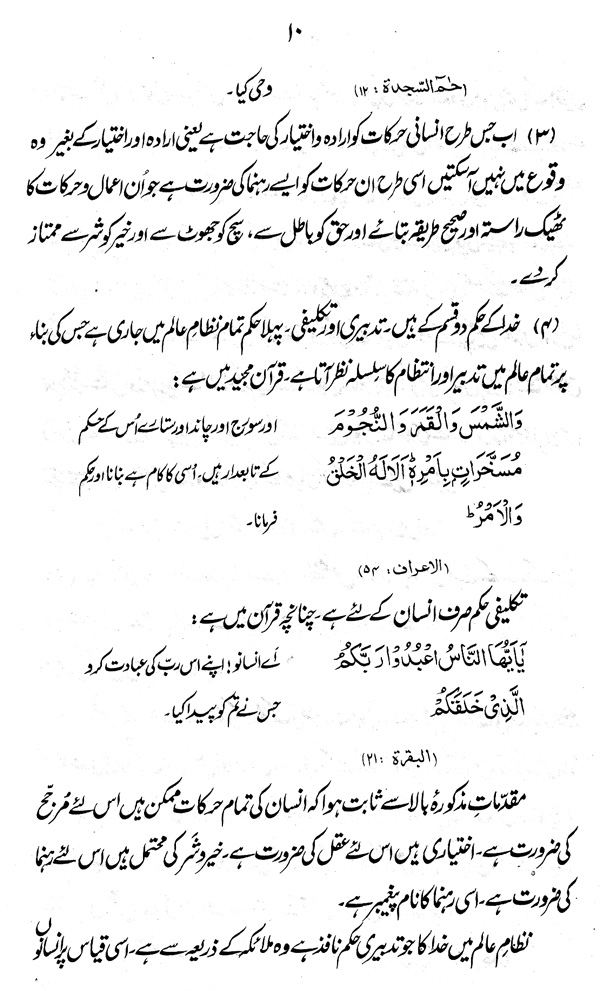 ۱۰
(حٰمٓ السّجدۃ : ۱۲) وحی کیا۔
(۳) اب جس طرح انسانی حرکات کو ارادہ و اختیار کی حاجت ہے یعنی ارادہ اور اختیار کے بغیر وہ
وقوع میں نہیں آسکتیں اسی طرح ان حرکات کو ایسے رہنما کی ضرورت ہے جو اُن اعمال و حرکات کا
ٹھیک راستہ اور صحیح طریقہ بتائے اور حق کو باطل سے، سچ کو جھوٹ سے اور خیر کو شر سے ممتاز
کردے۔
(۴) خدا کے حکم دو قسم کے ہیں۔ تدبیری اور تکلیفی۔ پہلا حکم تمام نظامِ عالم میں جاری ہے جس کی بناء
پر تمام عالم میں تدبیر اور انتظام کا سلسلہ نظر آتا ہے۔ قرآن مجید میں ہے:
وَالشَّمْسَ وَالْقَمَرَ وَالنُّجُوْمَ اور سورج اور چاند اور ستارے اُس کے حکم
مُسَخَّرَاتٍ بِاَمْرِہٖ ؕ اَلَا لَہُ الْخَلْقُ کے تابعدار ہیں۔ اُسی کا کام ہے بنانا اور حکم
وَالْاَمْرُ ؕ فرمانا۔
(الاعراف: ۵۴)
تکلیفی حکم صرف انسان کے لئے ہے۔ چنانچہ قرآن میں ہے:
یٰٓاَیُّھَا النَّاسُ اعْبُدُوْا رَبَّکُمُ اَے انسانو! اپنے اس ربّ کی عبادت کرو
الَّذِیْ خَلَقَکُمْ جس نے تم کو پیدا کیا۔
(البقرۃ :۲۱)
مقدّماتِ مذکورۂ بالا سے ثابت ہوا کہ انسان کی تمام حرکات ممکن ہیں اس لئے مُرجّح
کی ضرورت ہے۔ اختیاری ہیں اس لئے عقل کی ضرورت ہے۔ خیر و شر کی محتمل ہیں اس لئے رہنما
کی ضرورت ہے۔ اسی رہنما کا نام پیغمبر ہے۔
نظامِ عالم میں خدا کا جو تدبیری حکم نافذ ہے وہ ملائکہ کے ذریعہ سے ہے۔ اسی قیاس پر انسانوں